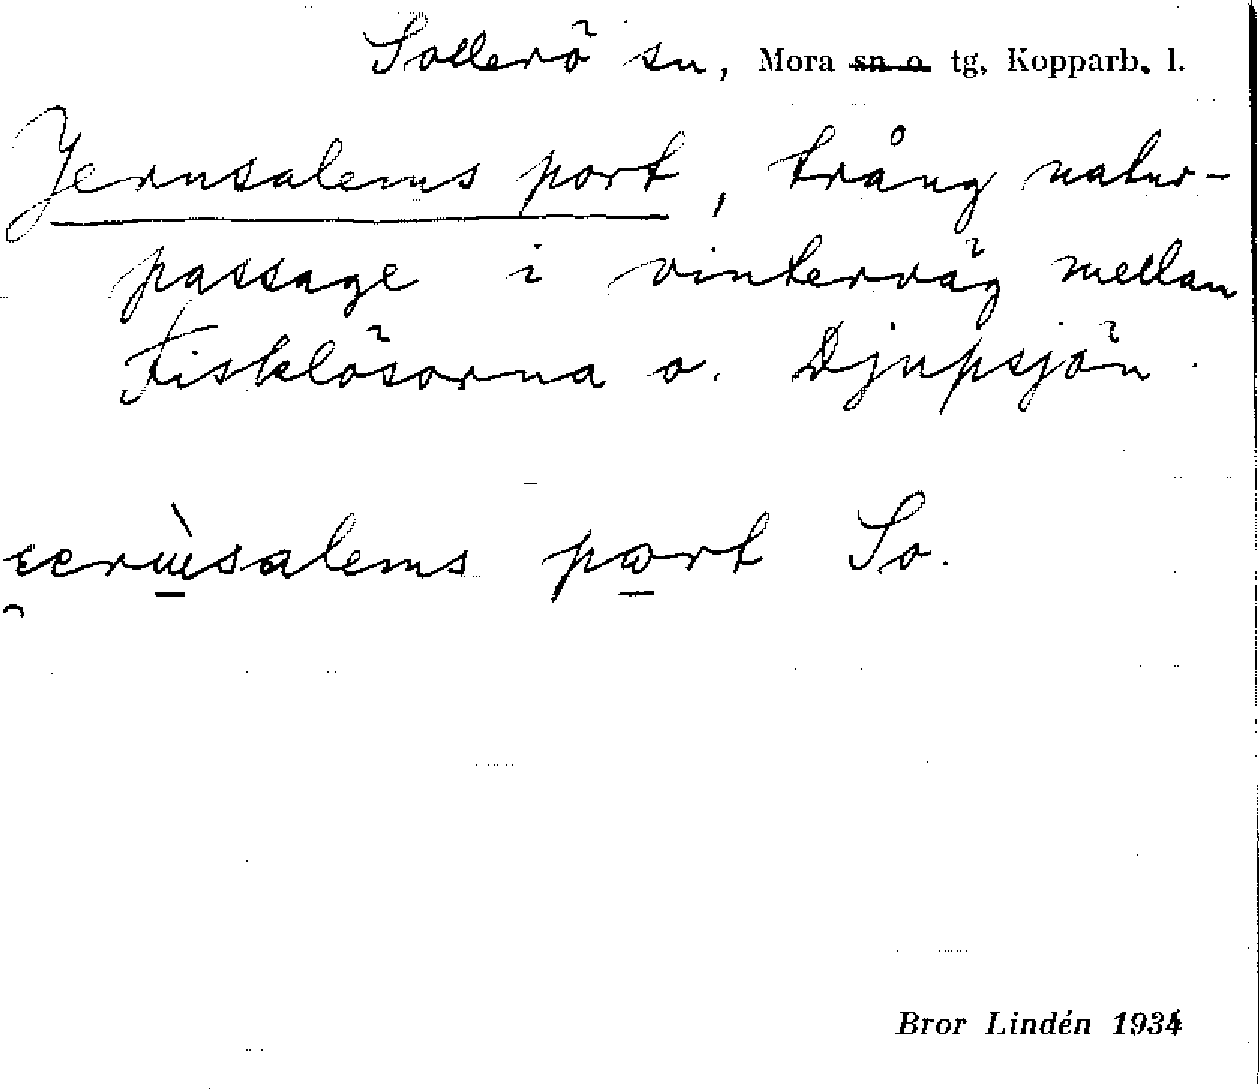 Sollerö sn, Mora sn o. tg, Kopparb. l.
Jerusalems port, trång natur-
passage i vinterväg mellan
Fisklösorna o. Djupsjön.
port So.
Bror Lindén 1934